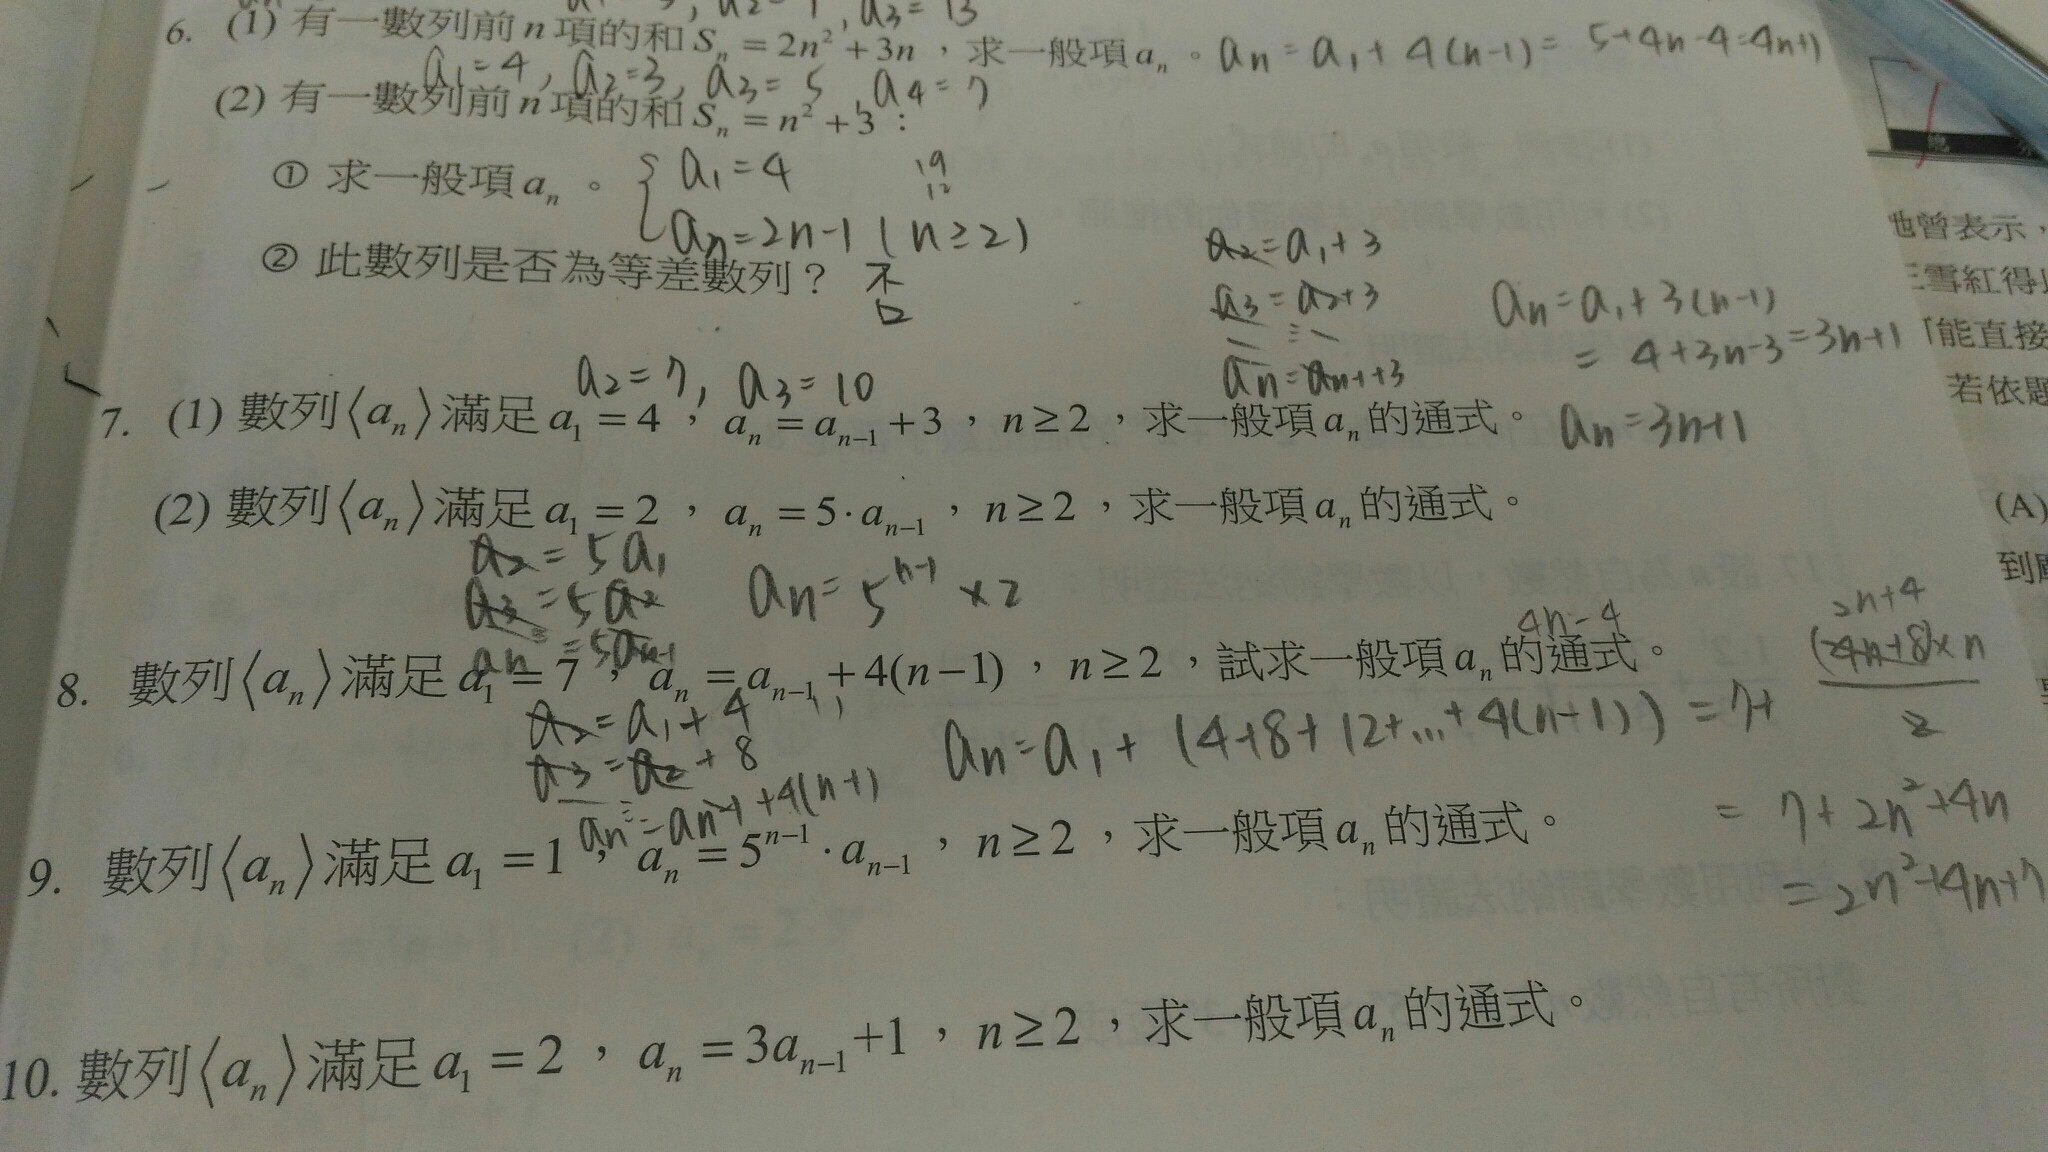 a₂= , a₃= 13
6. (1) 有一數列前 n 項的和 Sₙ = 2n² + 3n,求一般項 aₙ。 an = a₁ + 4(n-1) = 5+4n-4=4n+1
a₁=4, a₂=3, a₃=5, a4=7
(2) 有一數列前 n 項的和 Sₙ = n² + 3:
① 求一般項 aₙ。 { a₁=4
19
12
an=2n-1 (n≥2)
② 此數列是否為等差數列? 否
a₂=a₁+3
a3=a2+3
an=an-1+3
an=a₁+3(n-1)
= 4+3n-3=3n+1
a₂=7, a₃=10
7. (1) 數列⟨aₙ⟩滿足 a₁ = 4,aₙ = aₙ₋₁ + 3,n ≥ 2,求一般項 aₙ 的通式。 an=3n+1
(2) 數列⟨aₙ⟩滿足 a₁ = 2,aₙ = 5·aₙ₋₁,n ≥ 2,求一般項 aₙ 的通式。
a2=5a₁
a3=5a2
an=5an-1
an=5ⁿ⁻¹×2
4n-4
8. 數列⟨aₙ⟩滿足 a₁ = 7,aₙ = aₙ₋₁ + 4(n-1),n ≥ 2,試求一般項 aₙ 的通式。
a2=a₁+4
a3=a2+8
an=an-1+4(n+1)
an=a₁+(4+8+12+...+4(n+1)) = 7+
2n+4
(4n+8)×n
2
= 7+2n²+4n
=2n²+4n+7
9. 數列⟨aₙ⟩滿足 a₁ = 1,aₙ = 5ⁿ⁻¹·aₙ₋₁,n ≥ 2,求一般項 aₙ 的通式。
10. 數列⟨aₙ⟩滿足 a₁ = 2,aₙ = 3aₙ₋₁+1,n ≥ 2,求一般項 aₙ 的通式。
曾表示,
雪紅得
「能直接
若依題
(A)
到